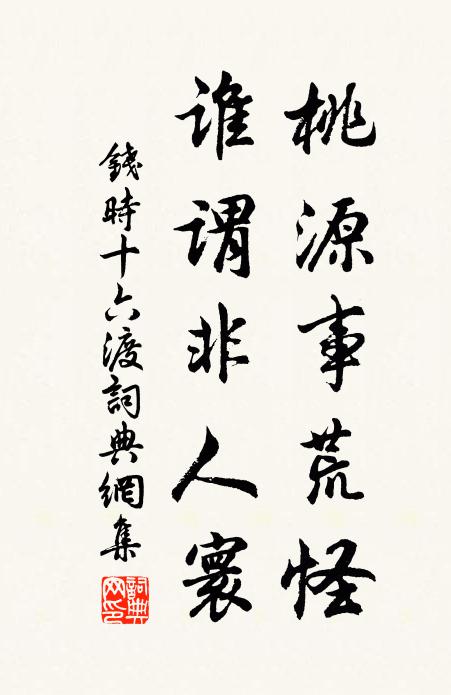 桃源事荒怪
誰謂非人寰
錢時十六渡詞典網集
詞典網印